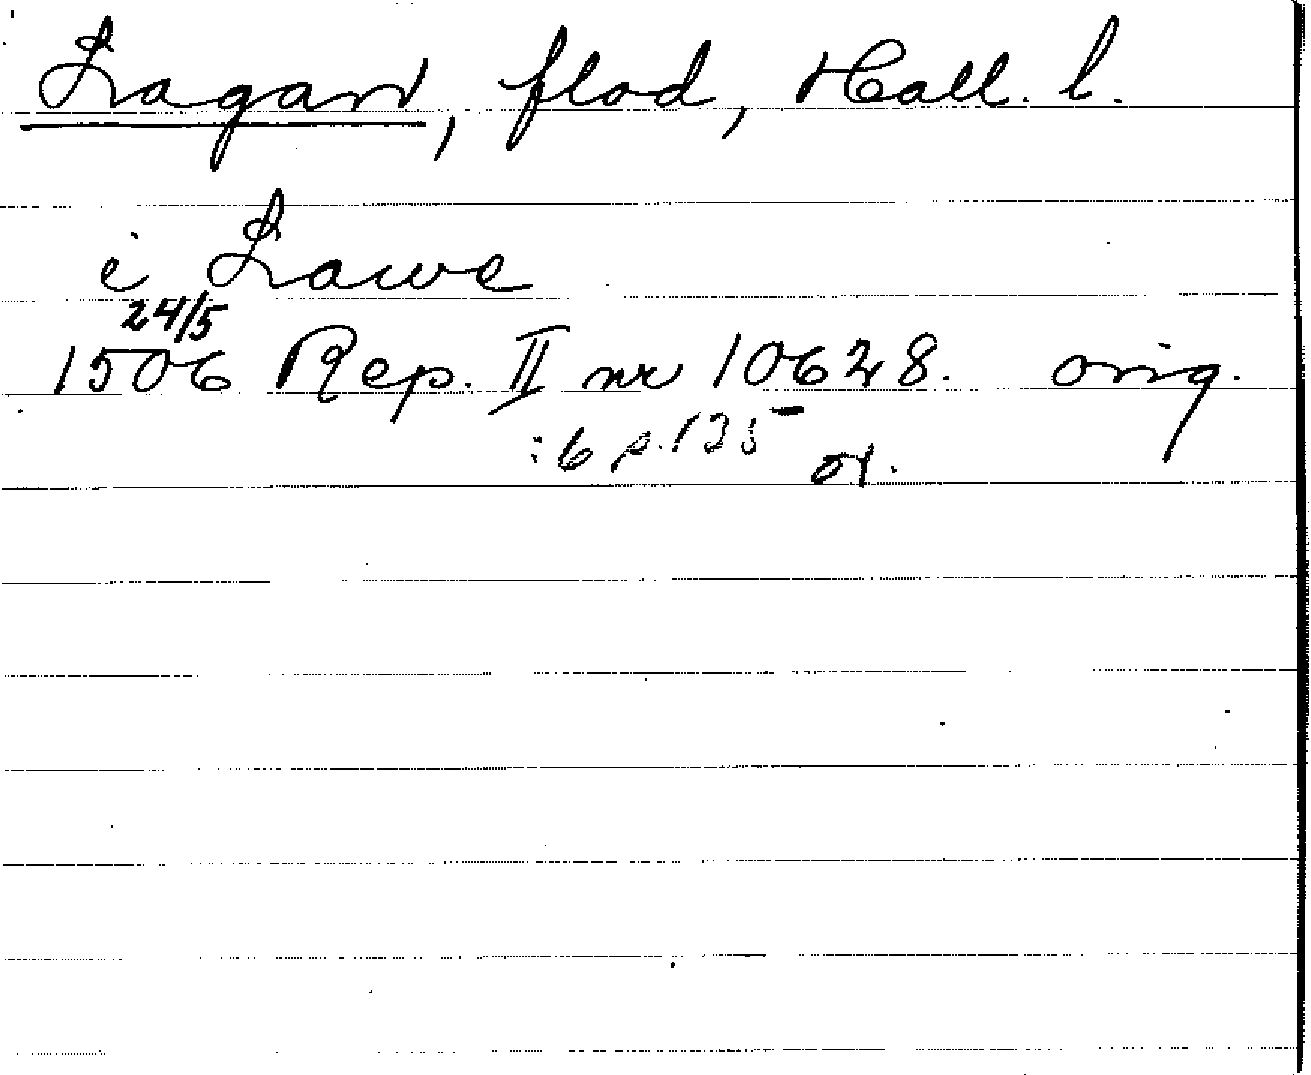 Lagan, flod, Hall. l.
i Lawe
24/5
1506 Rep. II nr 10628. orig.
:6 p. 135